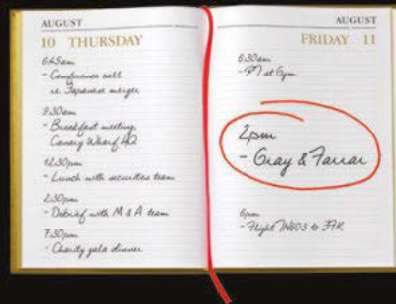 AUGUST
10 THURSDAY
6:45am
- Conference call
re. Japanese merger
8:30am
- Breakfast meeting,
Canary Wharf HQ
12:30pm
- Lunch with securities team
2:30pm
- Debrief with M & A team
7:30pm
- Charity gala dinner
AUGUST
FRIDAY 11
6:30am
- PT at Gym
2pm
- Gray & Farrar
6pm
- Flight to JFK